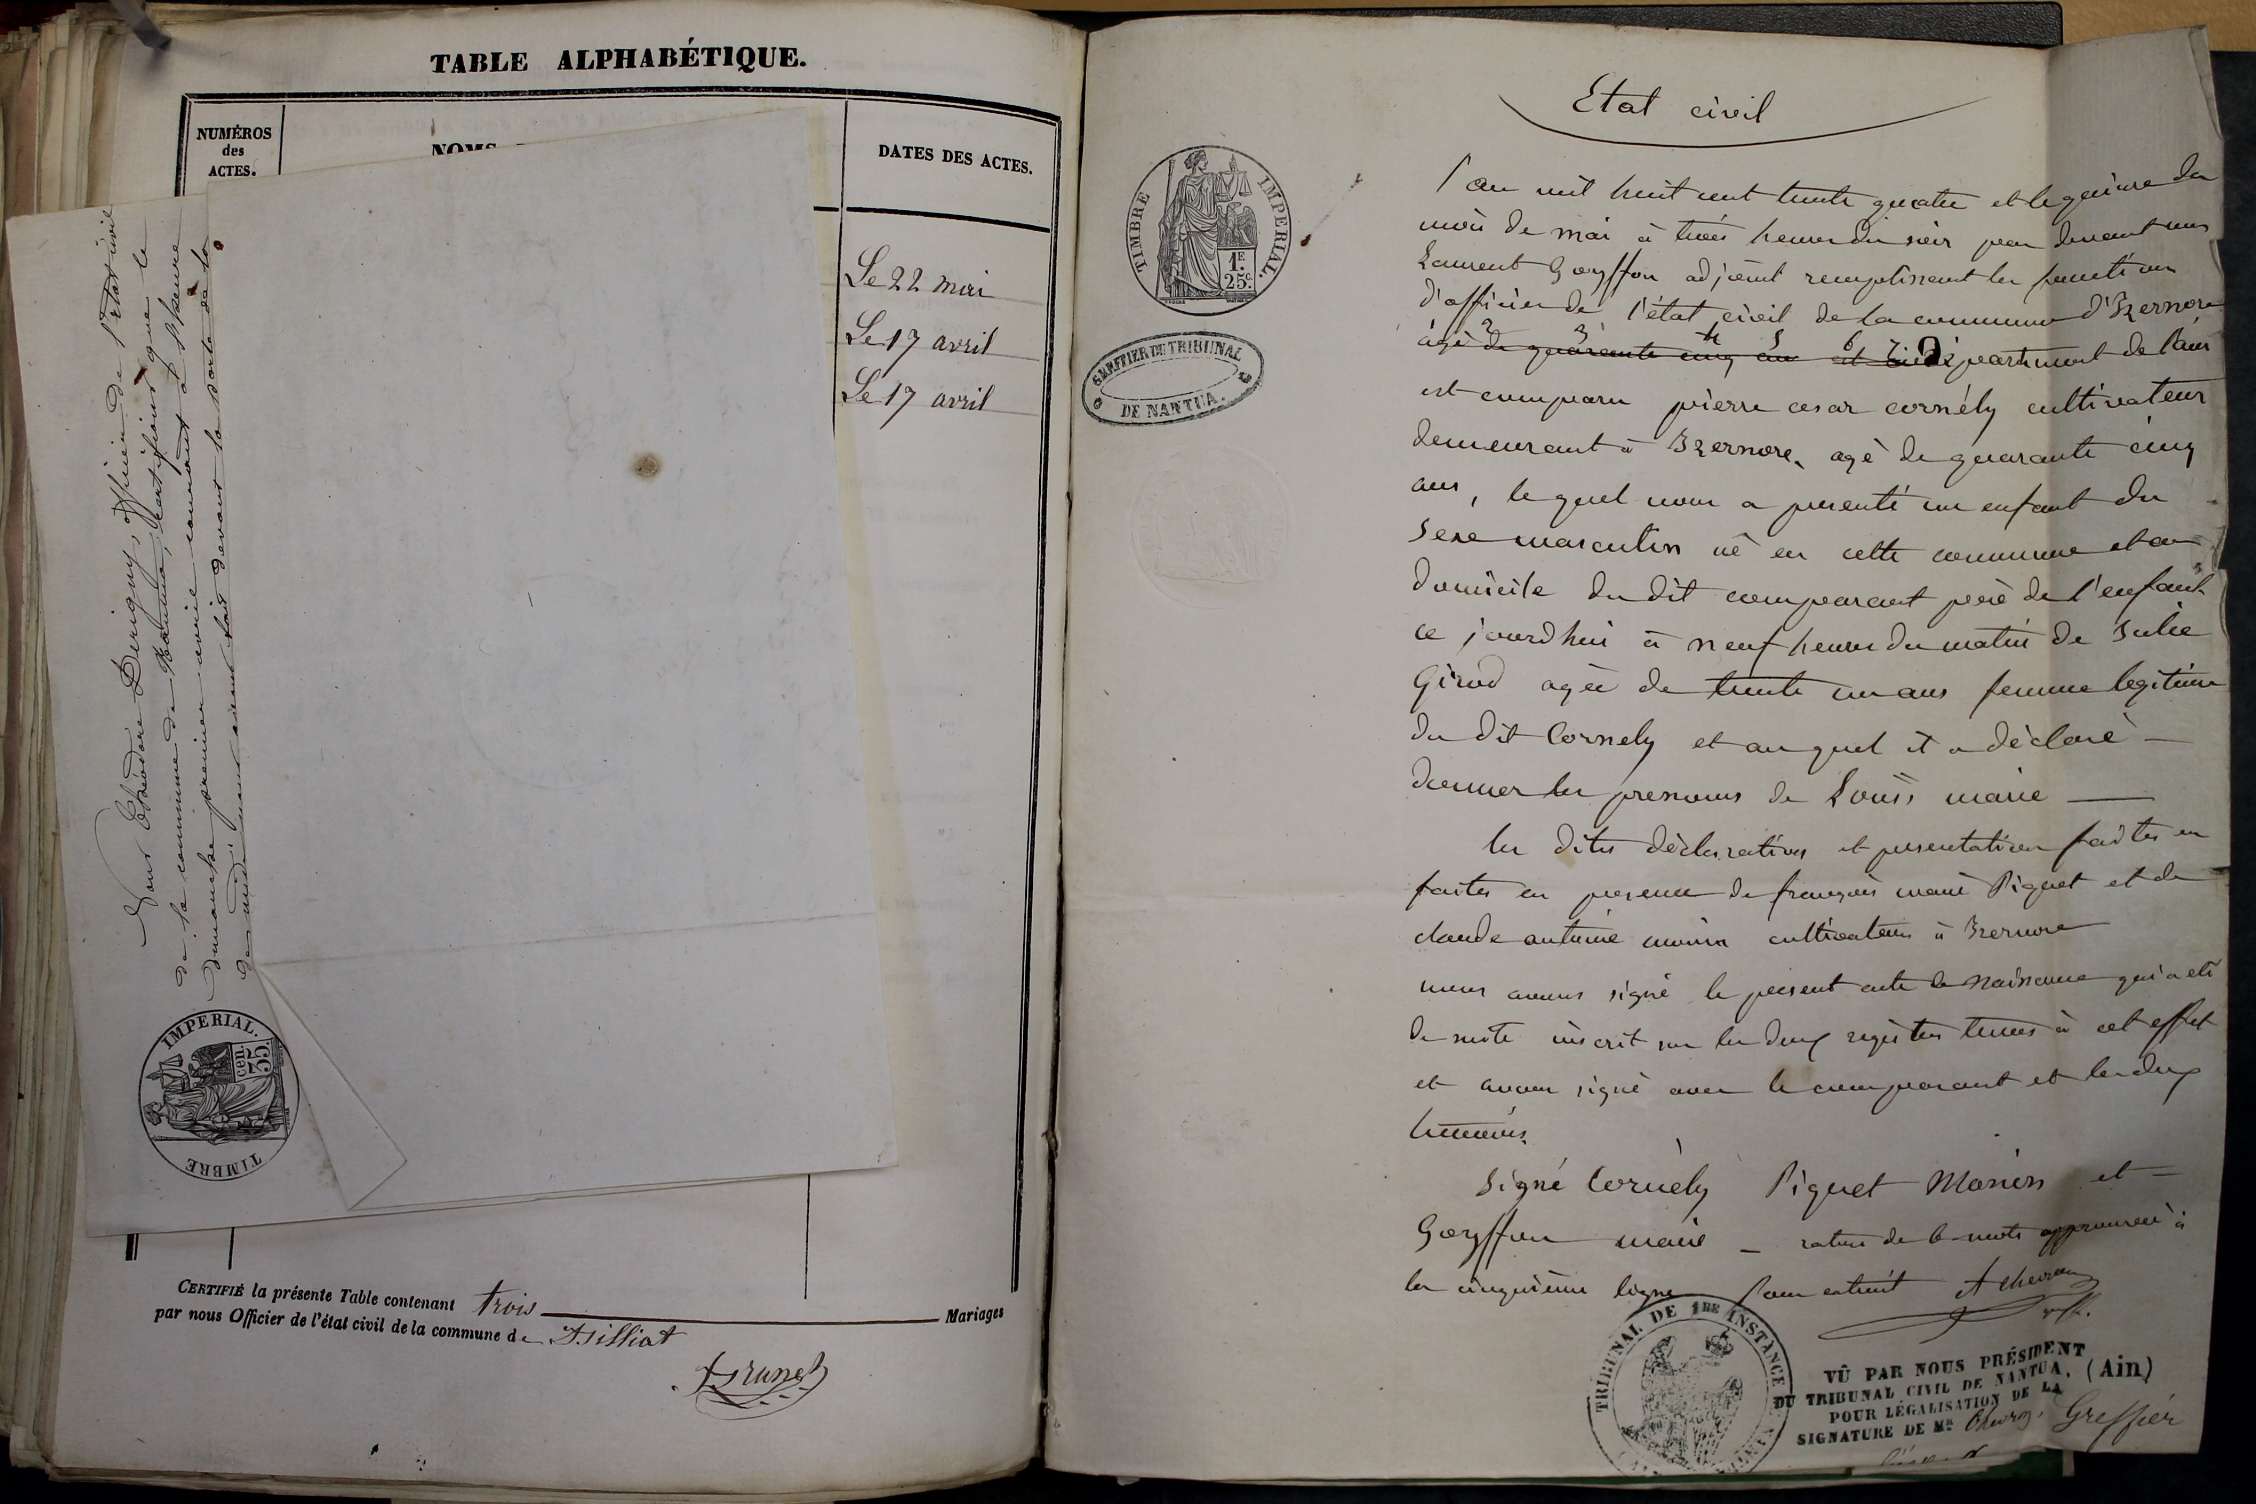 TABLE ALPHABÉTIQUE.
NUMÉROS
des
ACTES.
NOMS
DATES DES ACTES.
Le 22 mai
Le 17 avril
Le 17 avril
Nous Théodore Derigny, officier de l'Etat civil
de la commune de Nantua, certifions que le
dimanche premier avril courant à l'heure
de midi, nous avons fait devant la porte de la
TIMBRE IMPERIAL.
25 cen.
CERTIFIÉ la présente Table contenant trois Mariages
par nous Officier de l'état civil de la commune de Brilliat
Brunet
Etat civil
TIMBRE IMPERIAL.
1F. 25c.
GREFFIER DU TRIBUNAL
DE NANTUA.
l'an mil huit cent trente quatre et le quinze du
mois de mai à trois heures du soir par devant nous
Laurent Goyffon adjoint remplissant les fonctions
d'officier de l'état civil de la commune d'Izernore
âgé de quarante cinq ans et département de l'ain
est comparu pierre cesar cornély cultivateur
demeurant à Izernore, agé de quarante cinq
ans, lequel nous a presenté un enfant du
sexe masculin né en cette commune et au
domicile du dit comparant père de l'enfant
ce jourdhui à neuf heures du matin de Julie
Girod agée de trente un ans femme legitime
du dit Cornely et auquel il a déclaré
donner les prenoms de Louis marie
les dites déclaration et presentation faites en
faites en presence de françois marie Piquet et de
claude antoine monin cultivateurs à Izernore
nous avons signé le present acte de naissance qui a été
de suite inscrit sur les deux registres tenus à cet effet
et avons signé avec le comparant et les deux
temoins.
Signé Cornély Piquet Monin et
Goyffon maire – rature de 6 mots approuvée à
la cinquième ligne Pour extrait A Chevron
TRIBUNAL DE 1RE INSTANCE
VÛ PAR NOUS PRÉSIDENT
DU TRIBUNAL CIVIL DE NANTUA, (Ain)
POUR LÉGALISATION DE LA
SIGNATURE DE MR. Chevron, Greffier